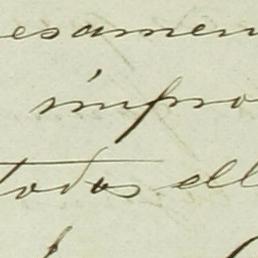 esamen
impro
todos ell